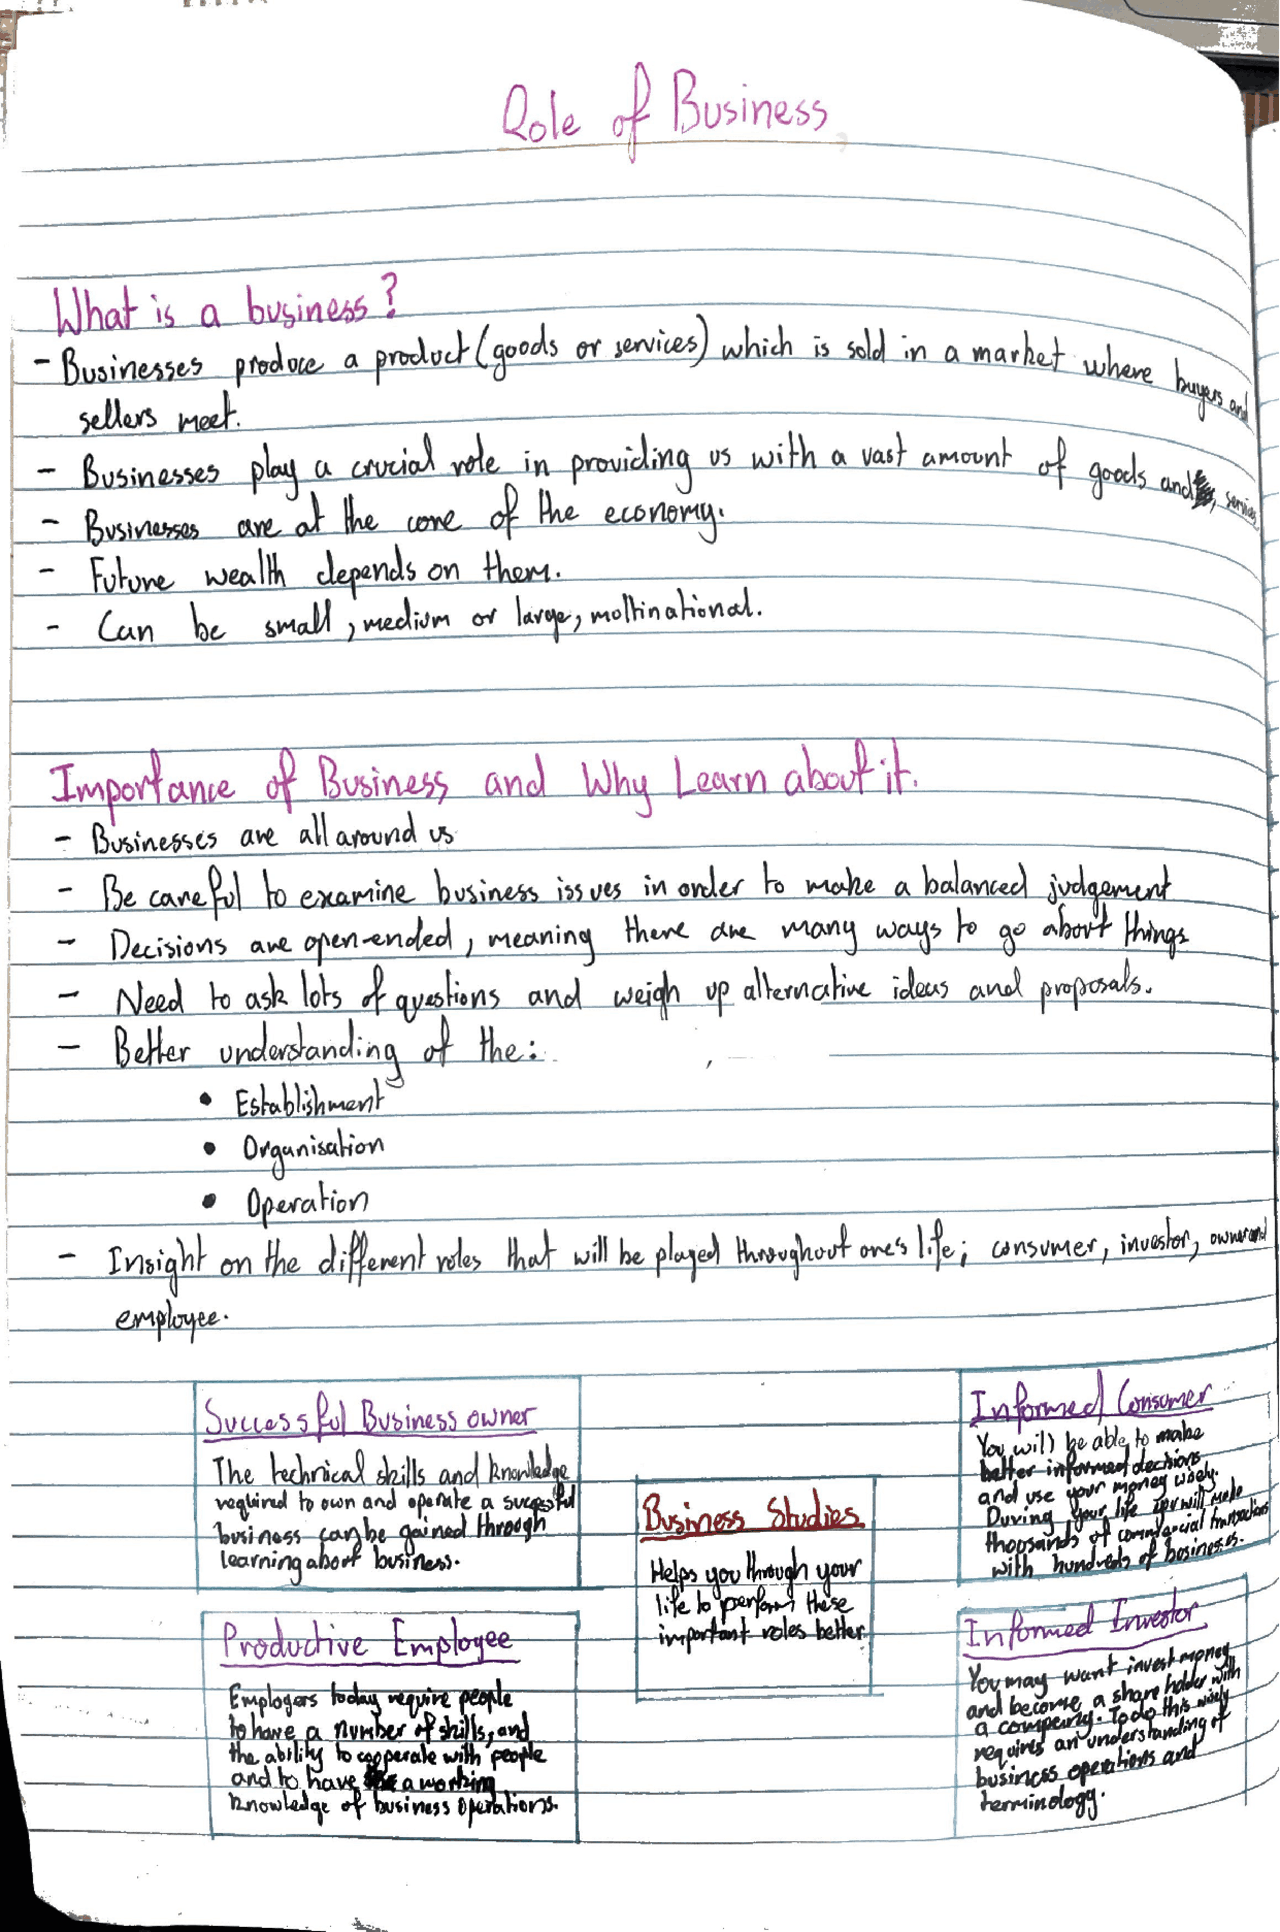 Role of Business
What is a business?
- Businesses produce a product (goods or services) which is sold in a market where buyers and
sellers meet.
- Businesses play a crucial role in providing us with a vast amount of goods and services
- Businesses are at the core of the economy.
- Future wealth depends on them.
- Can be small, medium or large, moltinational.
Importance of Business and Why Learn about it.
- Businesses are all around us
- Be careful to examine business issues in order to make a balanced judgement
- Decisions are open-ended, meaning there are many ways to go about things
- Need to ask lots of questions and weigh up alternative ideas and proposals.
- Better understanding of the:
• Establishment
• Organisation
• Operation
- Insight on the different roles that will be played throughout one's life; consumer, investor, owner and
employee.
Successful Business owner
The technical skills and knowledge
required to own and operate a successful
business can be gained through
learning about business.
Productive Employee
Employers today require people
to have a number of skills, and
the ability to cooperate with people
and to have a working
knowledge of business operations.
Business Studies
Helps you through your
life to perform these
important roles better
Informed Consumer
You will be able to make
better informed decisions
and use your money wisely.
During your life you will make
thousands of commercial transactions
with hundreds of businesses.
Informed Investor
You may want invest money
and become a share holder with
a company. To do this wisely
requires an understanding of
business operations and
terminology.